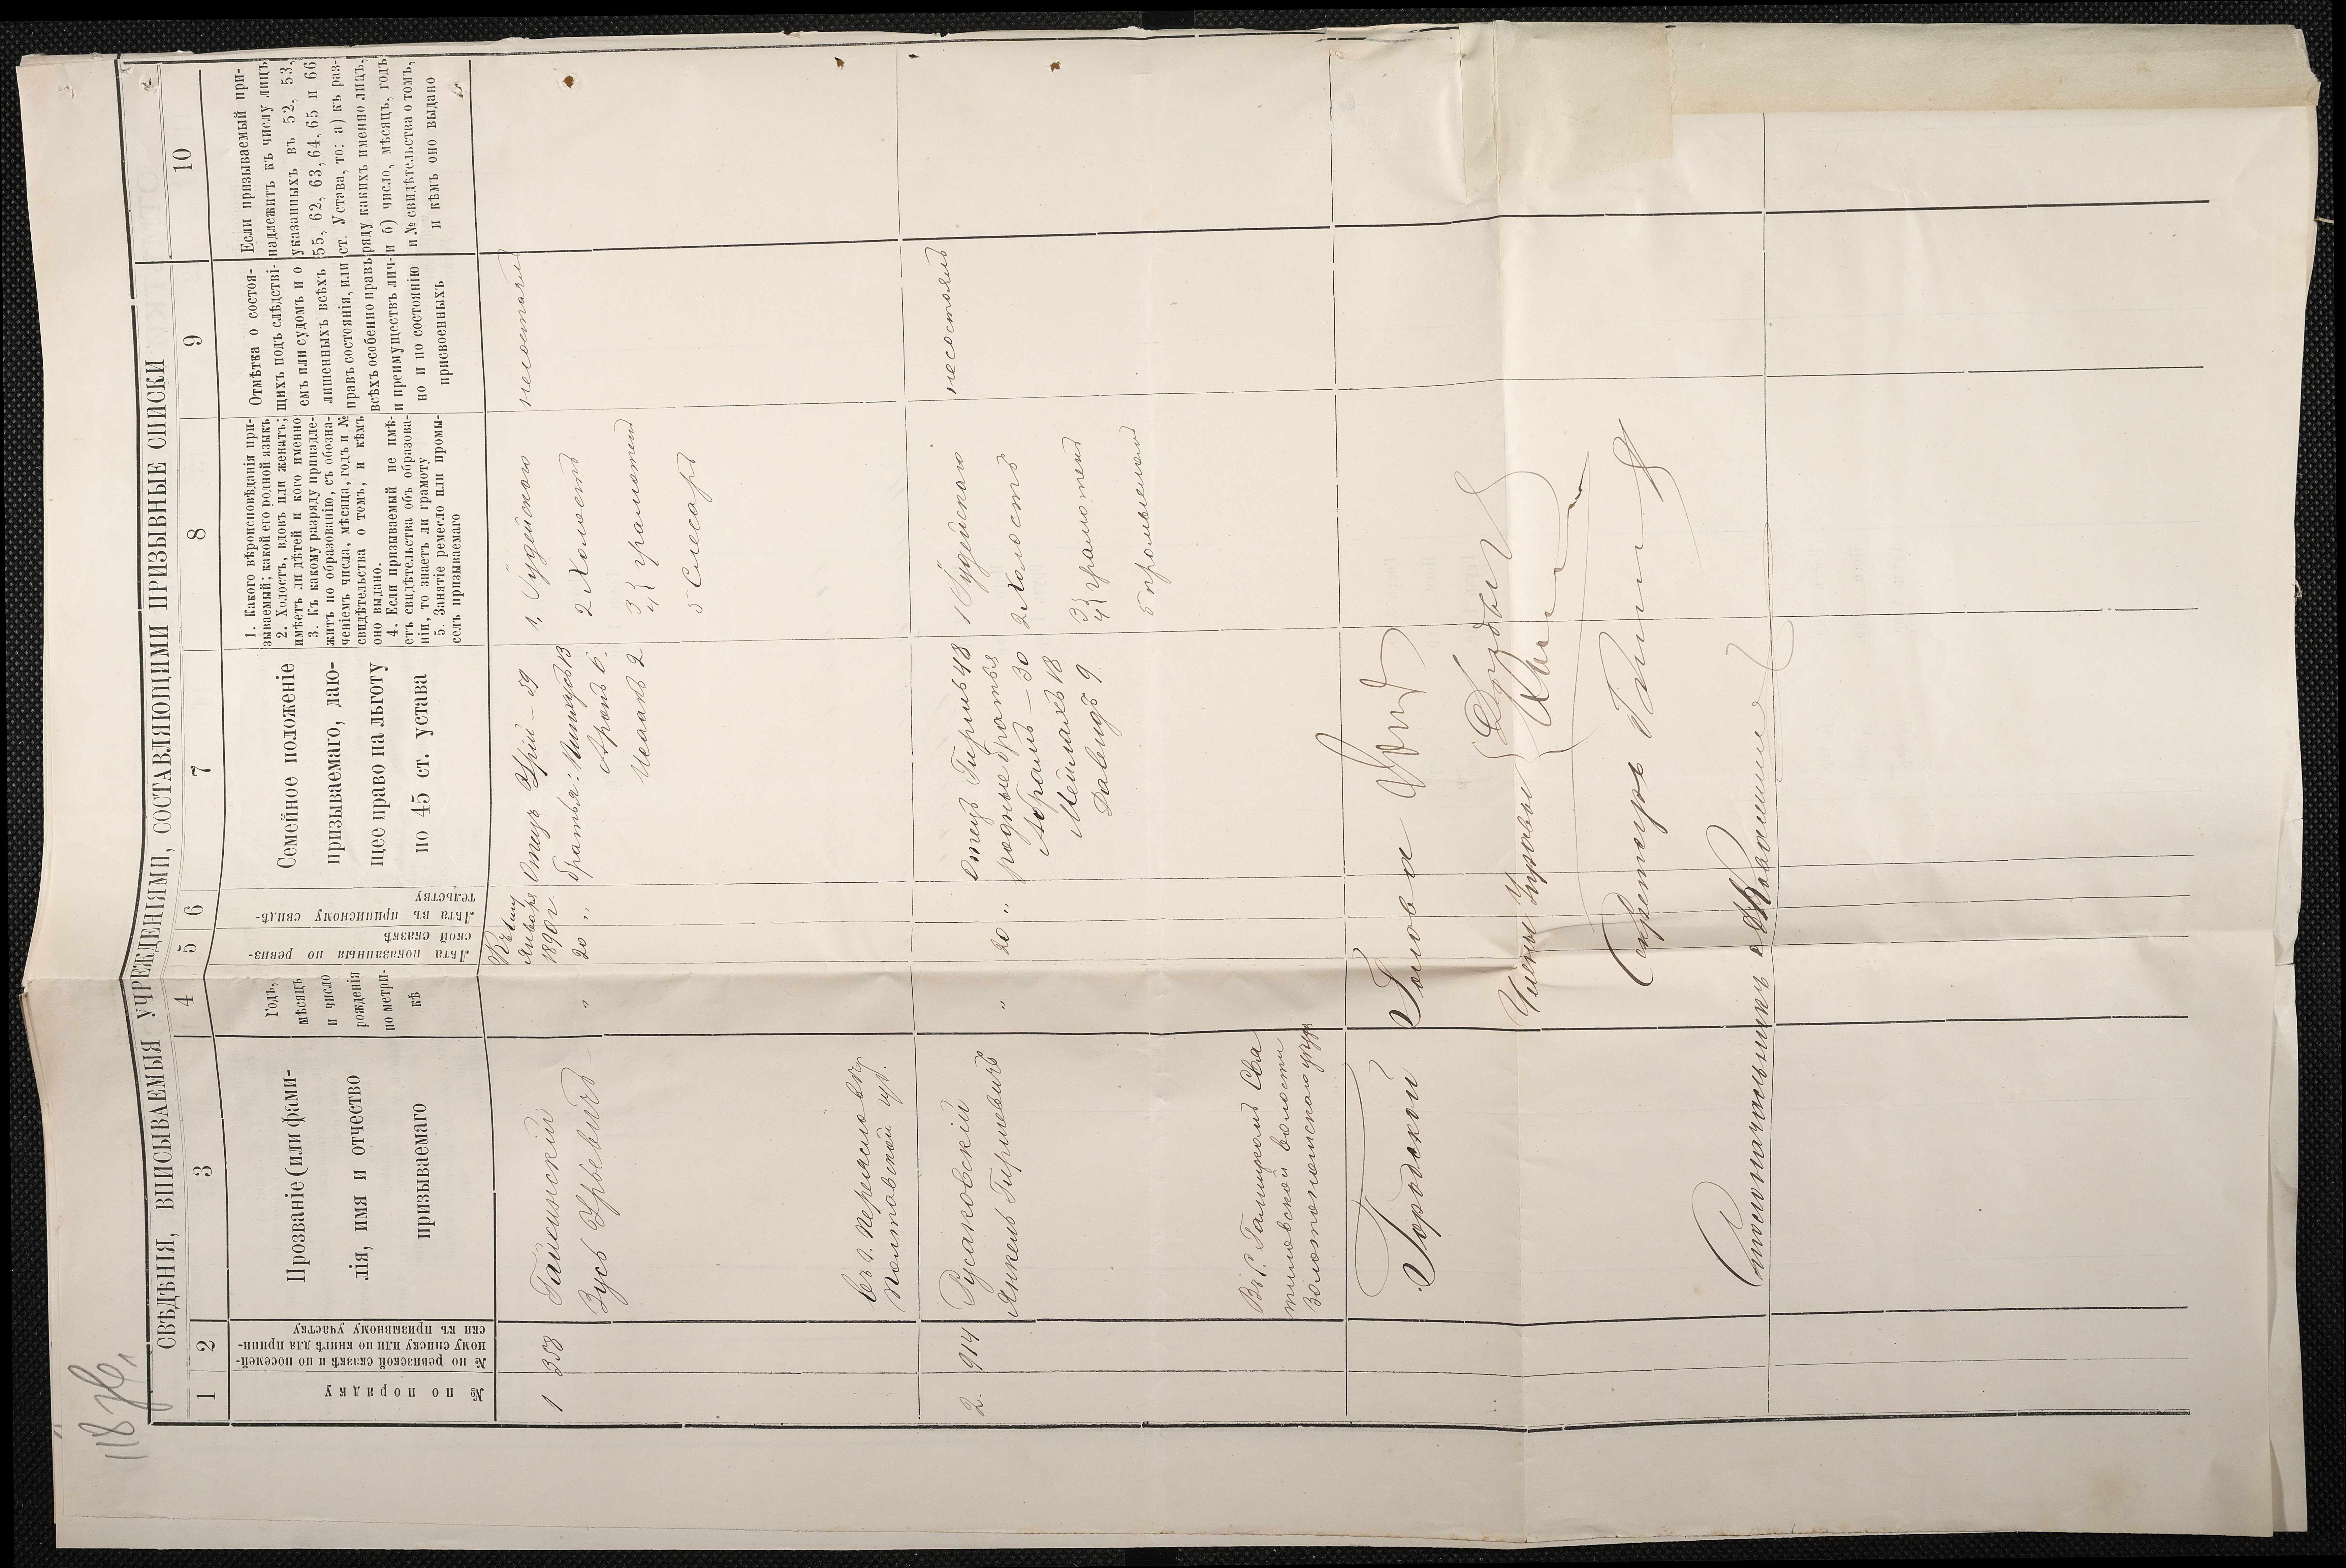 118
СВѢДѢНІЯ, ВПИСЫВАЕМЫЯ УЧРЕЖДЕНІЯМИ, СОСТАВЛЯЮЩИМИ ПРИЗЫВНЫЕ СПИСКИ
1 2 3 4 5 6 7 8 9 10
№ по порядку
№ по ревизской сказкѣ и по посемей-
ному списку или по книгѣ для припи-
ски къ призывному участку
Прозваніе (или фами-
лія, имя и отчество
призываемаго
Годъ,
мѣсяцъ
и число
рожденія
по метри-
кѣ
Лѣта показанныя по ревиз-
ской сказкѣ
Лѣта въ приписному свидѣ-
тельству
Семейное положеніе
призываемаго, даю-
щее право на льготу
по 45 ст. устава
1. Какого вѣроисповѣданія при-
зываемый; какой его родной языкъ
2. Холостъ, вдовъ или женатъ;
имѣетъ ли дѣтей и кого именно
3. Къ какому разряду принадле-
житъ по образованію, съ обозна-
ченіемъ числа, мѣсяца, годъ и №
свидѣтельства о томъ, и кѣмъ
оно выдано.
4. Если призываемый не имѣ-
етъ свидѣтельства объ образова-
ніи, то знаетъ ли грамоту
5. Занятіе ремесло или промы-
селъ призываемаго
Отмѣтка о состоя-
щихъ подъ слѣдстві-
емъ или судомъ и о
лишенныхъ всѣхъ
правъ состоянія, или
всѣхъ особенно правъ
и преимуществъ лич-
но и по состоянію
присвоенныхъ
Если призываемый при-
надлежитъ къ числу лицъ,
указанныхъ въ 52, 53,
55, 62, 63, 64, 65 и 66
ст. Устава, то: а) къ раз-
ряду какихъ именно лицъ,
и б) число, мѣсяцъ, годъ
и № свидѣтельства о томъ,
и кѣмъ оно выдано
1 358
Зусь Урьевичъ
въ г. Переяславѣ
Полтовской губ.
"
Января
1890 г.
20 "
Отецъ Урій — 59
братья: Пинхусъ 13
Аронъ 6.
Исаакъ 2
1, Іудейскаго
2 Холостъ
3
4 } грамотенъ
5 Слесарь
несостоялъ
2. 914 Русаковскій
Янкель Гиршевичъ
"
20 "
Отецъ Гиршъ 48
родные братья
Абрамъ — 30
Мейлахъ 18
Давидъ 9.
1 Іудейскаго
2 Холостъ
3
4 } грамотенъ
5
несостоялъ
волости
Городской Голова
Члены Управы {
Секретарь
Столоначальникъ